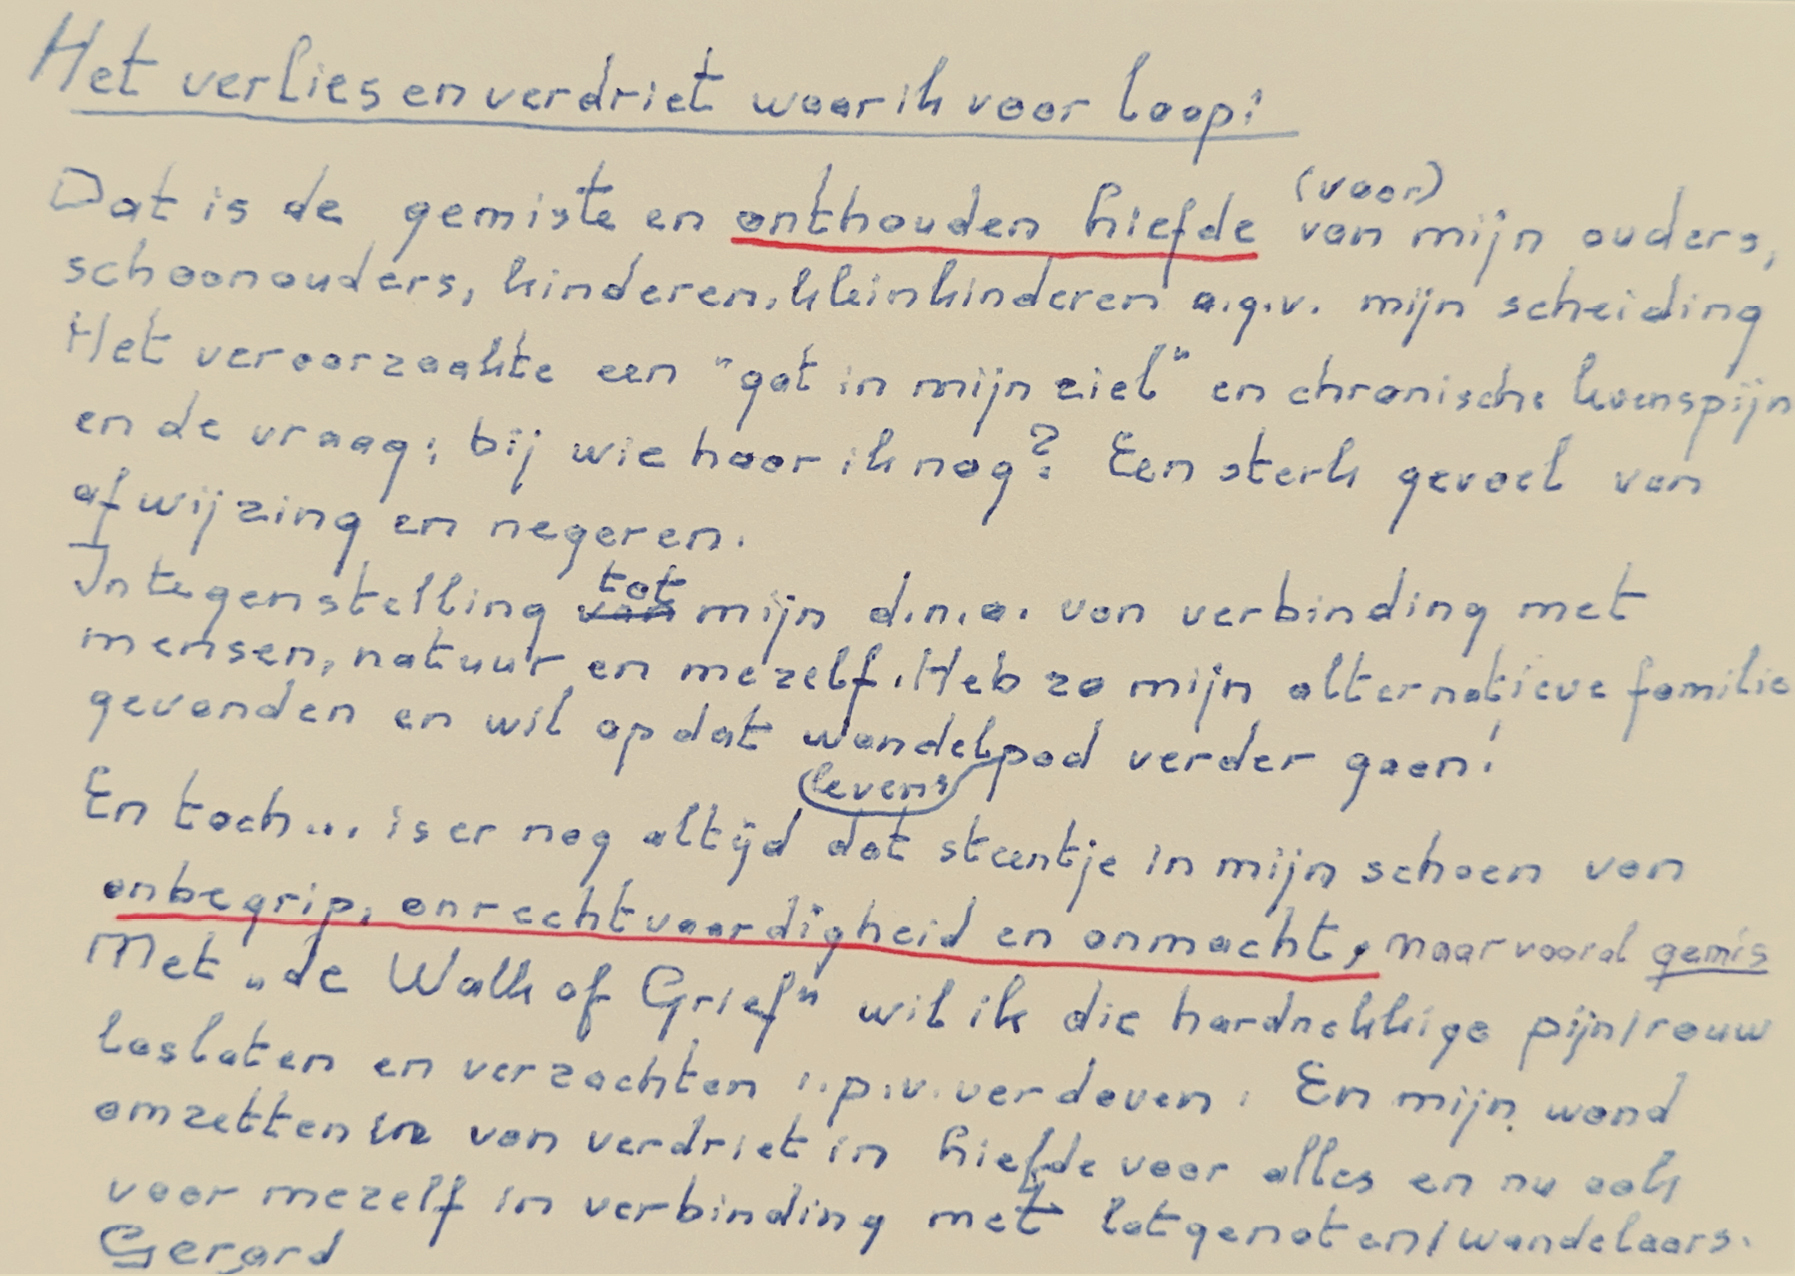 Het verlies en verdriet waar ik voor loop:
Dat is de gemiste en onthouden liefde (voor) van mijn ouders,
schoonouders, kinderen, kleinkinderen a.g.v. mijn scheiding
Het veroorzaakte een "gat in mijn ziel" en chronische levenspijn
en de vraag: bij wie hoor ik nog? Een sterk gevoel van
afwijzing en negeren.
In tegenstelling van tot mijn d.n.a. van verbinding met
mensen, natuur en mezelf. Heb zo mijn alternatieve familie
gevonden en wil op dat wandelpad verder gaan!
levens
En toch... is er nog altijd dat steentje in mijn schoen van
onbegrip, onrechtvaardigheid en onmacht, maar vooral gemis
Met „de Walk of Grief" wil ik die hardnekkige pijn/rouw
loslaten en verzachten i.p.v. verdoven. En mijn wond
omzetten in van verdriet in liefde voor alles en nu ook
voor mezelf in verbinding met lotgenoten/wandelaars.
Gerard